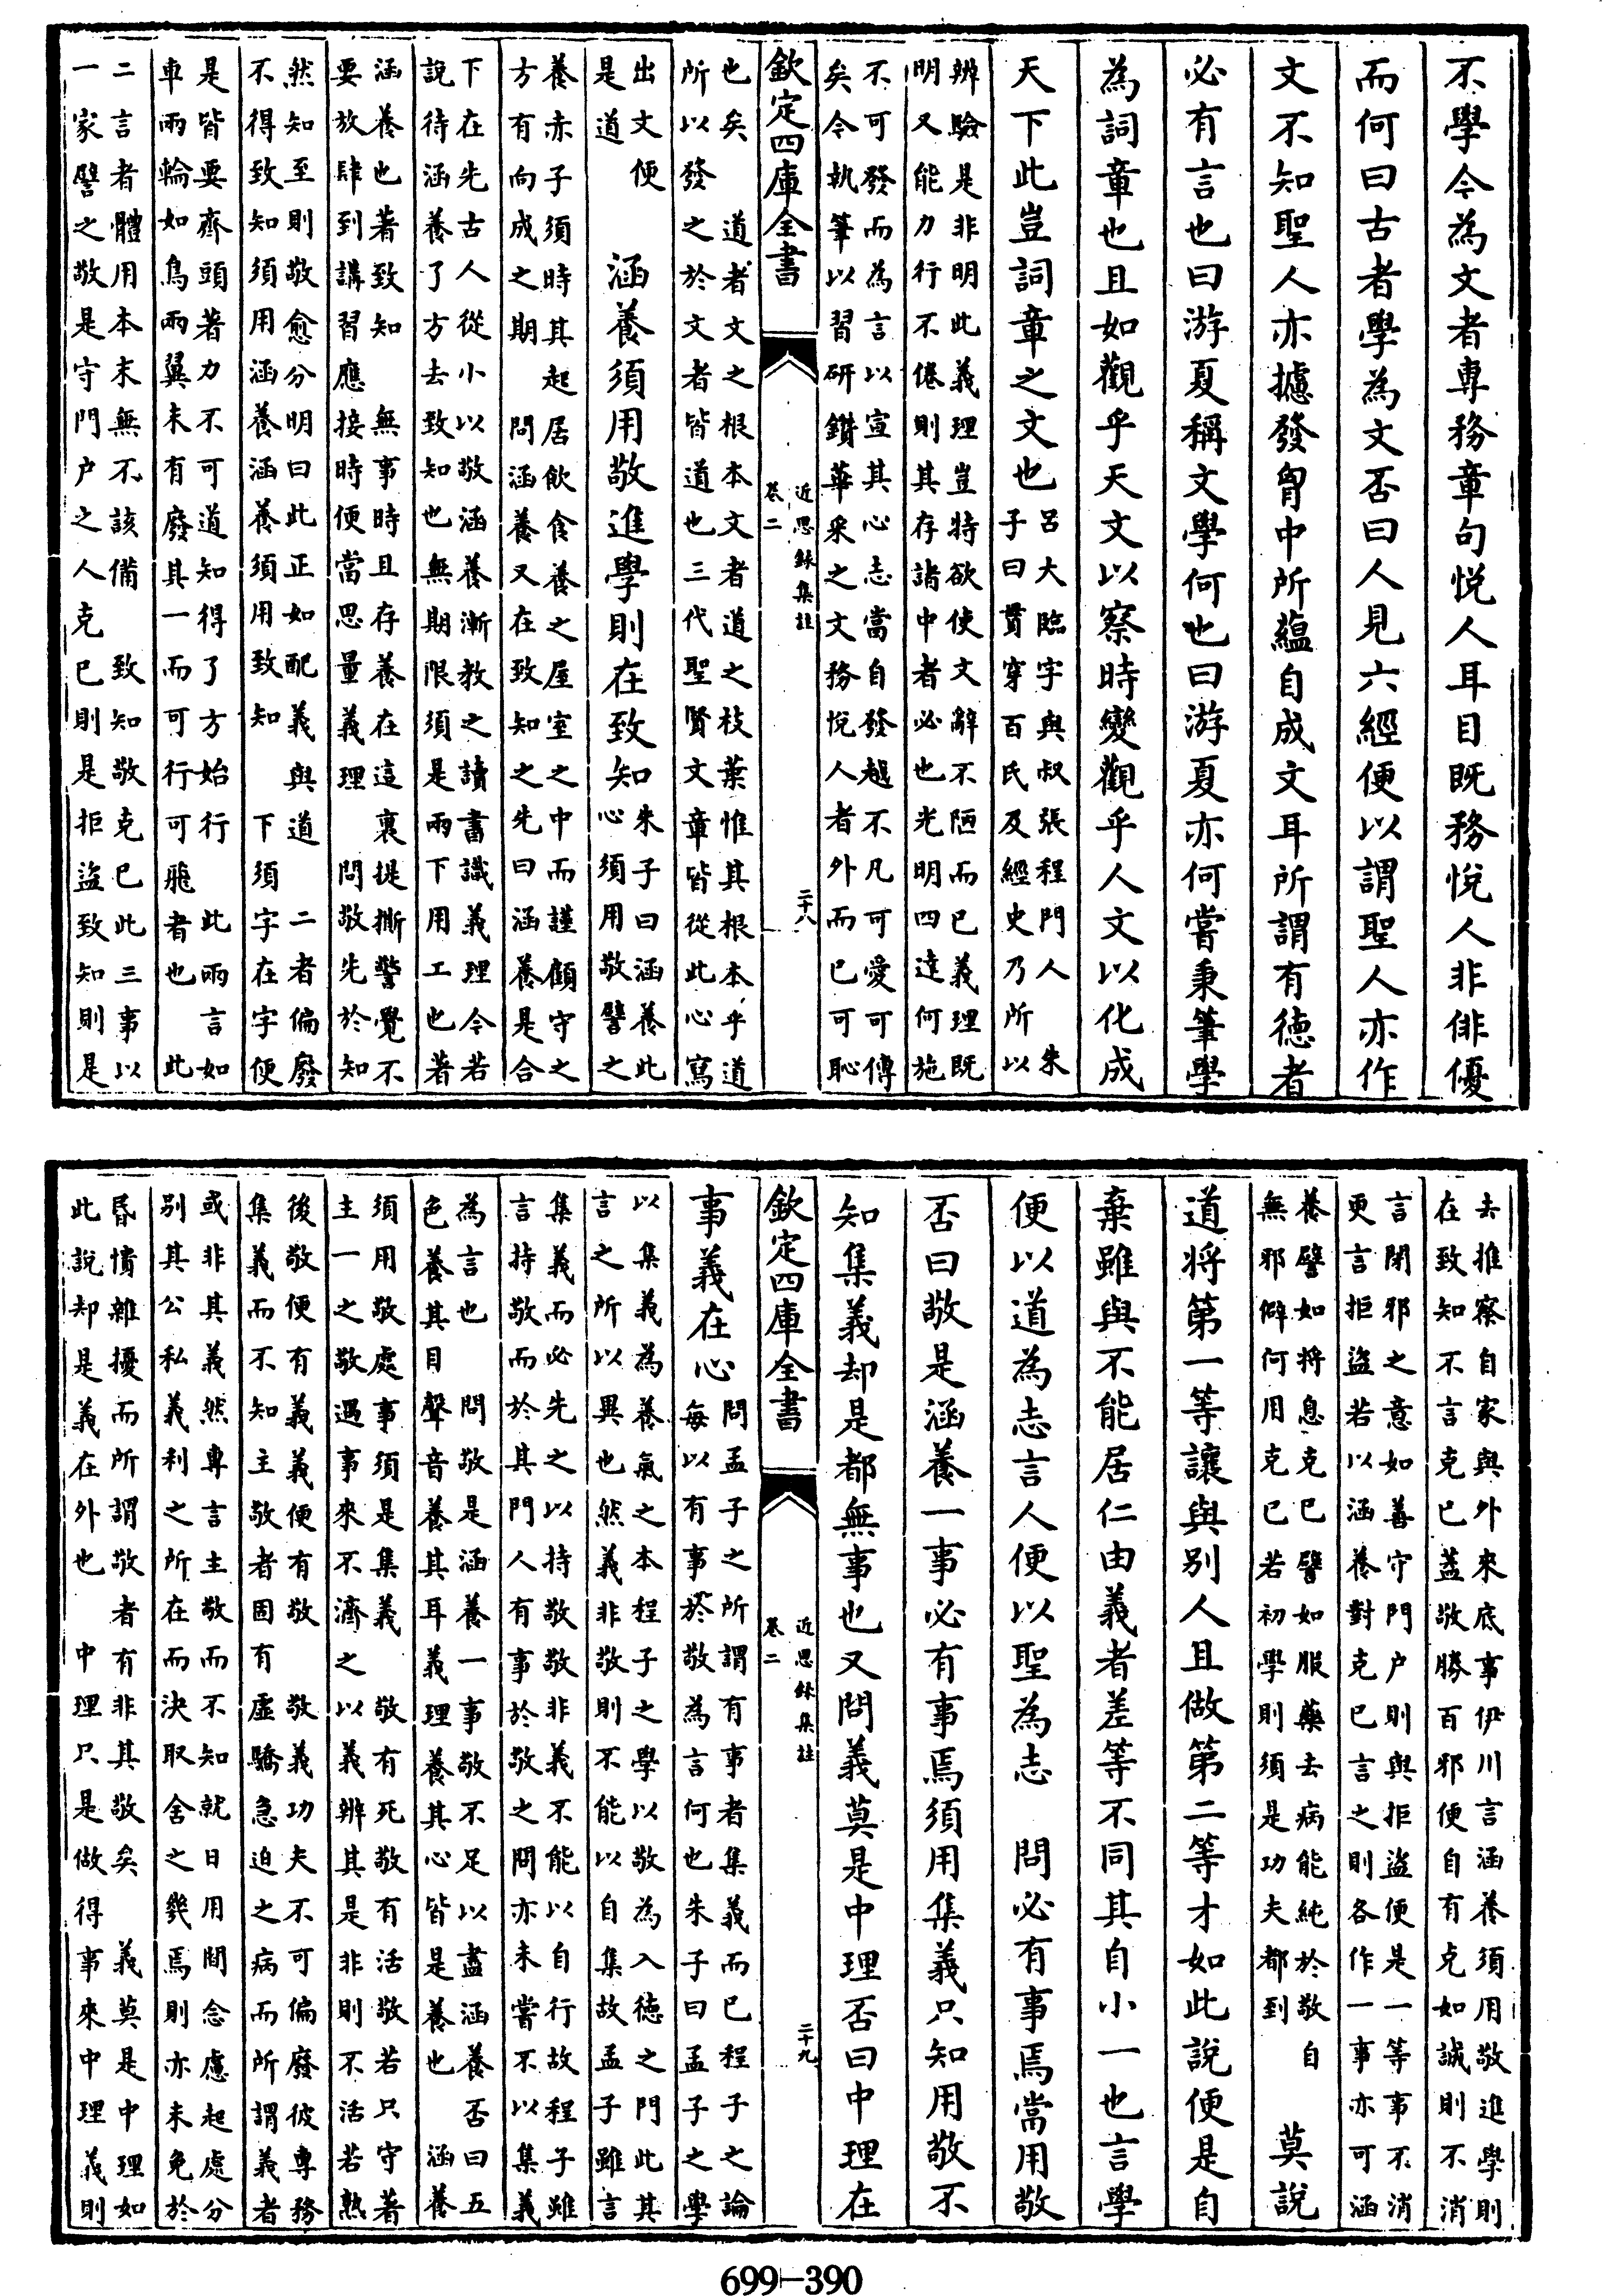 不學今為文者專務章句悦人耳目既務悅人非俳優
而何曰古者學為文否曰人見六經便以謂聖人亦作
文不知聖人亦攄發胷中所蘊自成文耳所謂有德者
必有言也曰游夏稱文學何也曰游夏亦何嘗秉筆學
為詞章也且如觀乎天文以察時變觀乎人文以化成
天下此豈詞章之文也呂大臨字與叔張程門人 朱
子曰貫穿百氏及經史乃所以
辨驗是非明此義理豈特欲使文辭不陋而已義理既
明又能力行不倦則其存諸中者必也光明四達何施
不可發而為言以宣其心志當自發越不凡可愛可傳
矣今執筆以習研鑽華采之文務悅人者外而已可恥
欽定四庫全書
近思録集註
卷二
二十八
也矣 道者文之根本文者道之枝葉惟其根本乎道
所以發之於文者皆道也三代聖賢文章皆從此心寫
出文便
是道
涵養須用敬進學則在致知朱子曰涵養此
心須用敬譬之
養赤子須時其起居飲食養之屋室之中而謹顧守之
方有向成之期 問涵養又在致知之先曰涵養是合
下在先古人從小以敬涵養漸教之讀書識義理今若
說待涵養了方去致知也無期限須是兩下用工也著
涵養也著致知 無事時且存養在這裏提撕警覺不
要放肆到講習應接時便當思量義理 問敬先於知
然知至則敬愈分明曰此正如配義與道 二者偏廢
不得致知須用涵養涵養須用致知 下須字在字便
是皆要齊頭著力不可道知得了方始行 此兩言如
車兩輪如鳥兩翼未有廢其一而可行可飛者也 此
二言者體用本末無不該備 致知敬克已此三事以
一家譬之敬是守門户之人克已則是拒盜致知則是
去推察自家與外來底事伊川言涵養須用敬進學則
在致知不言克已蓋敬勝百邪便自有克如誠則不消
言閉邪之意如善守門户則與拒盜便是一等事不消
更言拒盜若以涵養對克已言之則各作一事亦可涵
養譬如將息克已譬如服藥去病能純於敬自
無邪僻何用克已若初學則須是功夫都到
莫說
道將第一等讓與别人且做第二等才如此說便是自
棄雖與不能居仁由義者差等不同其自小一也言學
便以道為志言人便以聖為志 問必有事焉當用敬
否曰敬是涵養一事必有事焉須用集義只知用敬不
知集義却是都無事也又問義莫是中理否曰中理在
欽定四庫全書
近思録集註
卷二
二十九
事義在心問孟子之所謂有事者集義而已程子之論
每以有事於敬為言何也朱子曰孟子之學
以集義為養氣之本程子之學以敬為入德之門此其
言之所以異也然義非敬則不能以自集故孟子雖言
集義而必先之以持敬敬非義不能以自行故程子雖
言持敬而於其門人有事於敬之問亦未嘗不以集義
為言也 問敬是涵養一事敬不足以盡涵養否曰五
色養其目聲音養其耳義理養其心皆是養也 涵養
須用敬處事須是集義 敬有死敬有活敬若只守著
主一之敬遇事來不濟之以義辨其是非則不活若熟
後敬便有義義便有敬 敬義功夫不可偏廢彼專務
集義而不知主敬者固有虛驕急迫之病而所謂義者
或非其義然專言主敬而不知就日用間念慮起處分
別其公私義利之所在而決取舍之幾焉則亦未免於
昏憒雜擾而所謂敬者有非其敬矣 義莫是中理如
此說却是義在外也 中理只是做得事來中理義則
699-390